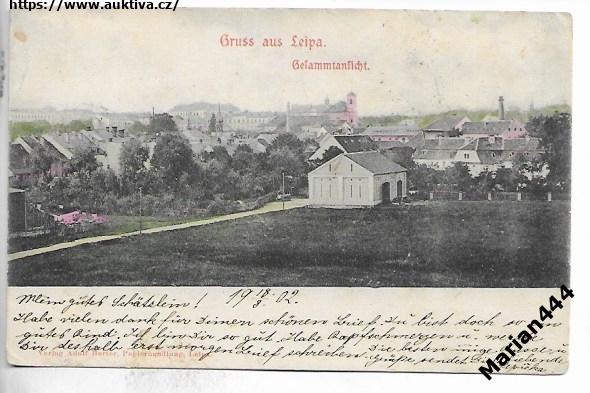 https://www.auktiva.cz/
Gruss aus Leipa.
Gesammtansicht.
Mein gutes Schätslein! 19 18/3. 02.
Habe vielen dank für Deinen schönen Brief. Du bist doch so ein
gutes Kind. Ich bin Dir so gut, Habe Kopfschmerzen u. werde
Dir deshalb erst morgen Brief schreiben. Die besten
Verlag Adolf Papierhandlung, Leipa.
Grüße sendet
Marian444